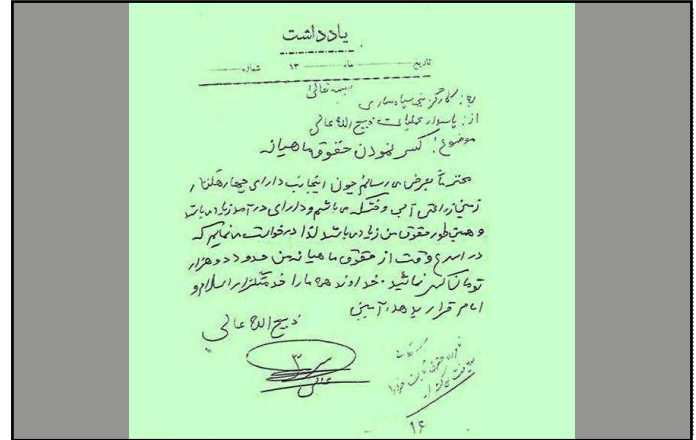 یادداشت
تاریخ ماه ۱۳ شماره
بسمه تعالی
به: کارگزینی سپاه ساری
از: پاسدار عملیات ذبیح الله عالی
موضوع: کسر نمودن حقوق ماهیانه
محترماً بعرض می رسانم چون اینجانب دارای چهار هکتار
زمین زراعتی آبی و خشکه می باشم و دارای درآمد زیاد می باشد
و همینطور حقوق من زیاد می باشد لذا درخواست می نمایم که
در اسرع وقت از حقوق ماهیانه من حدود دو هزار
تومان کسر نمائید. خداوند همه ما را خدمتگزار اسلام و
امام قرار بدهد. آمین
ذبیح الله عالی
۳
۱۶